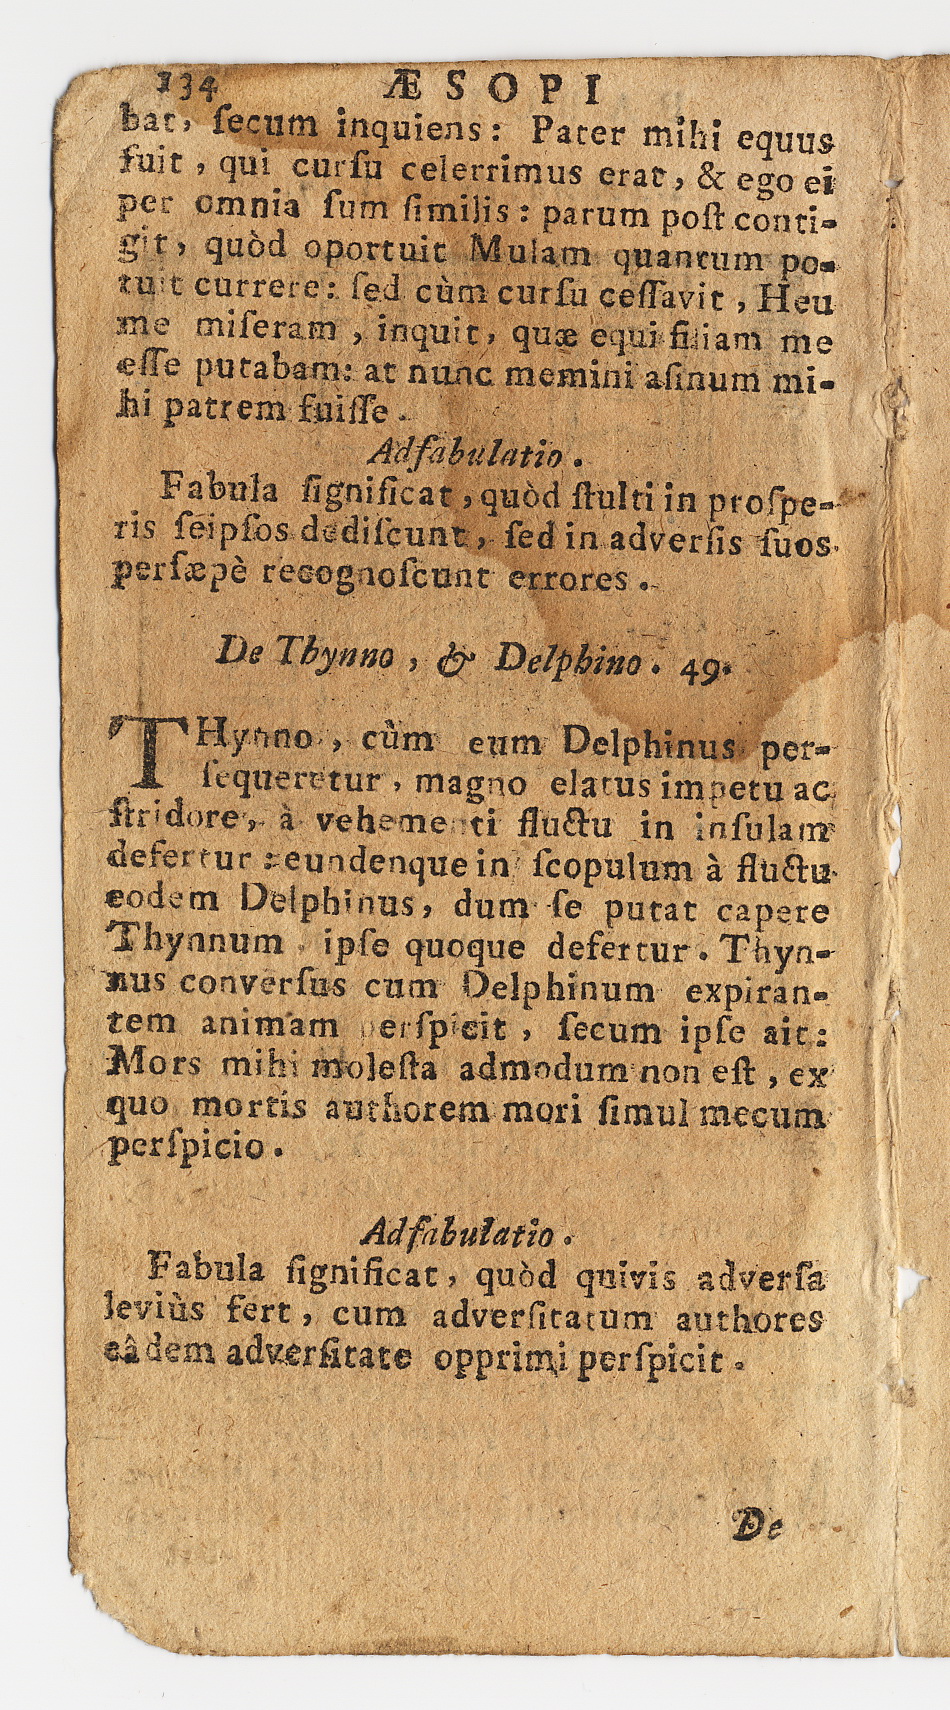 134 ÆSOPI
bat, ſecum inquiens: Pater mihi equus
fuit, qui curſu celerrimus erat, & ego ei
per omnia ſum ſimilis: parum poſt conti-
git, quòd oportuit Mulam quantum po-
tuit currere: ſed cùm curſu ceſſavit, Heu
me miſeram, inquit, quæ equi filiam me
eſſe putabam: at nunc memini aſinum mi-
hi patrem fuiſſe.
Adfabulatio.
Fabula ſignificat, quòd ſtulti in proſpe-
ris ſeipſos dediſcunt, ſed in adverſis ſuos
perſæpè recognoſcunt errores.
De Thynno, & Delphino. 49.
THynno, cùm eum Delphinus per-
ſequeretur, magno elatus impetu ac
ſtridore, à vehementi fluctu in inſulam
defertur: eundenque in ſcopulum à fluctu
eodem Delphinus, dum ſe putat capere
Thynnum ipſe quoque defertur. Thyn-
nus converſus cum Delphinum expiran-
tem animam perſpicit, ſecum ipſe ait:
Mors mihi moleſta admodum non eſt, ex
quo mortis authorem mori ſimul mecum
perſpicio.
Adfabulatio.
Fabula ſignificat, quòd quivis adverſa
leviùs fert, cum adverſitatum authores
eâdem adverſitate opprimi perſpicit.
De